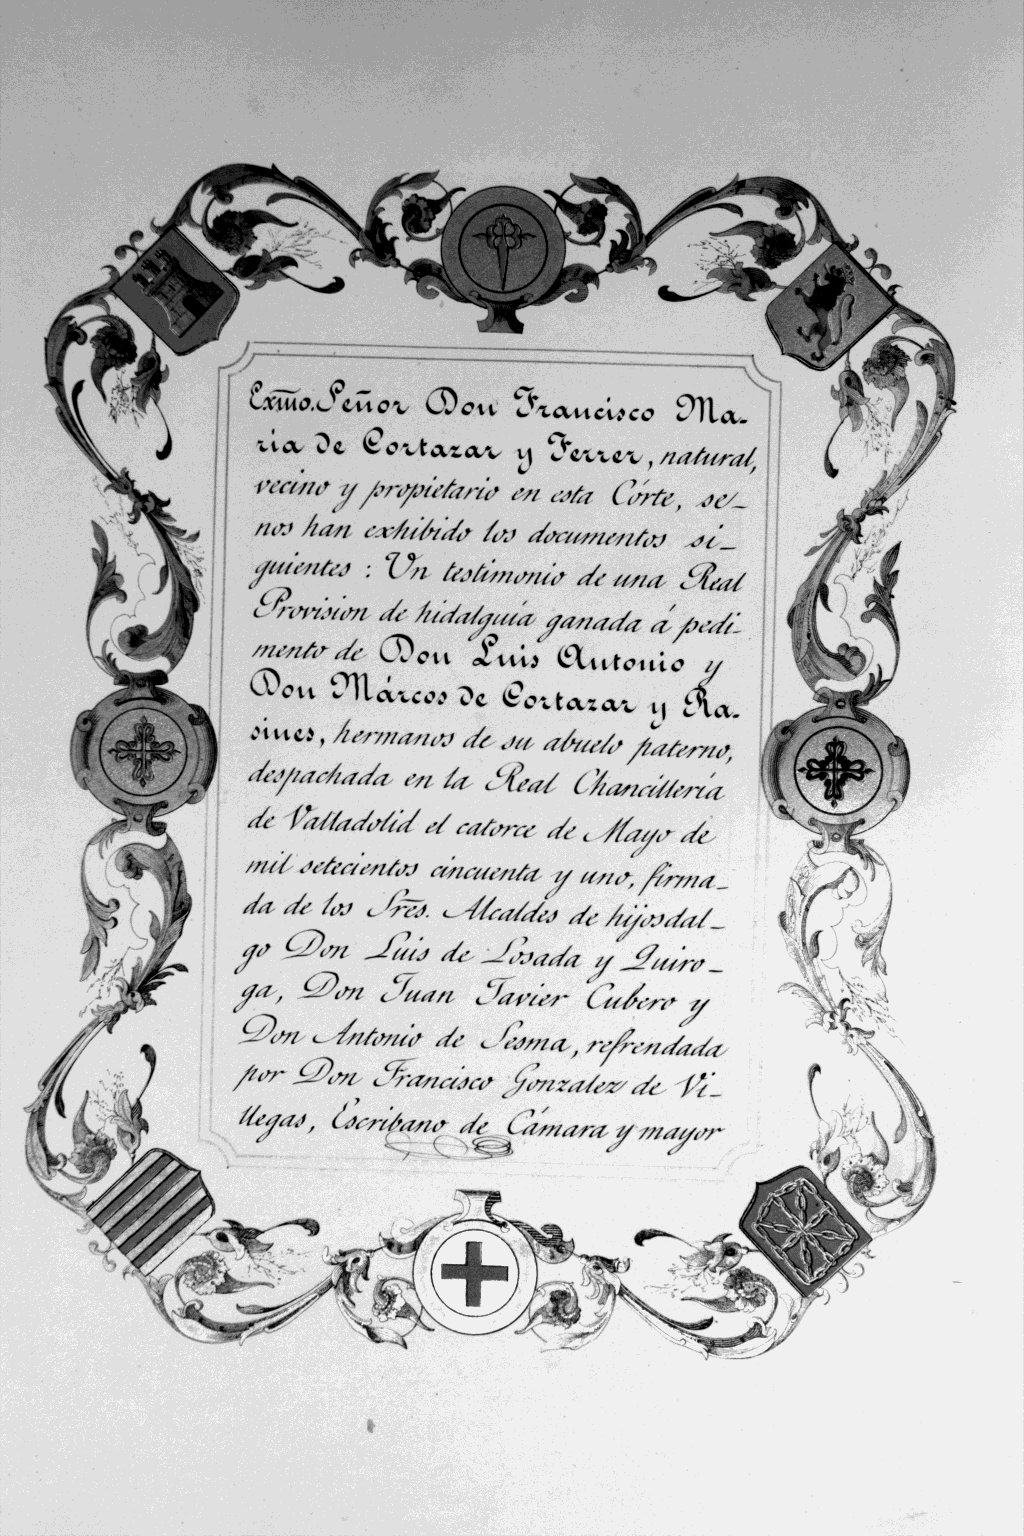 Exm̅o. Señor Don Francisco Ma-
ria de Cortazar y Ferrer, natural,
vecino y propietario en esta Córte, se_
nos han exhibido los documentos si_
guientes : Un testimonio de una Real
Provision de hidalguía ganada á pedi-
mento de Don Luis Antonio y
Don Márcos de Cortazar y Ra-
sines, hermanos de su abuelo paterno,
despachada en la Real Chancillería
de Valladolid el catorce de Mayo de
mil setecientos cincuenta y uno, firma_
da de los Sr̅es. Alcaldes de hijosdal_
go Don Luis de Losada y Quiro_
ga, Don Juan Javier Cubero y
Don Antonio de Sesma, refrendada
por Don Francisco Gonzalez de Vi_
llegas, Escribano de Cámara y mayor